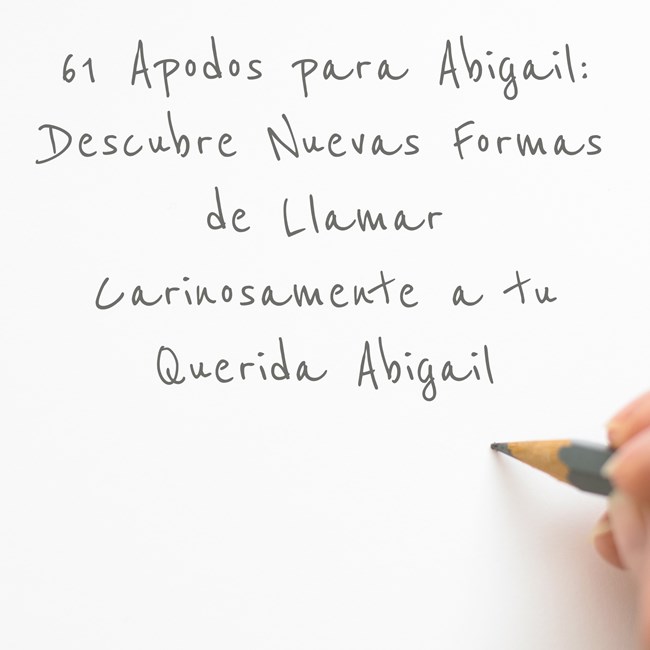 61 Apodos para Abigail:
Descubre Nuevas Formas
de Llamar
Carinosamente a tu
Querida Abigail